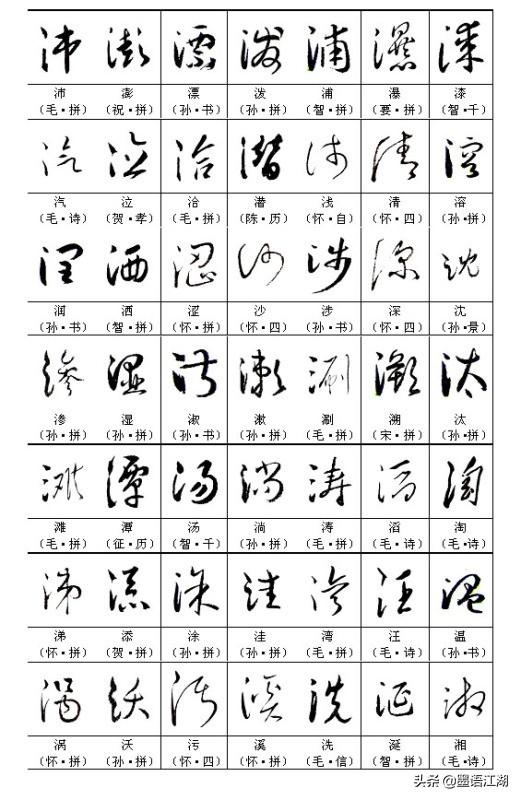 沛 澎 漂 泼 浦 瀑 漆
(毛·拼) (祝·拼) (孙·书) (孙·拼) (智·拼) (要·拼) (智·千)
汽 泣 洽 潜 浅 清 溶
(毛·诗) (贺·孝) (毛·拼) (陈·历) (怀·自) (怀·四) (孙·拼)
润 洒 涩 沙 涉 深 沈
(孙·书) (智·拼) (怀·拼) (怀·四) (孙·书) (怀·四) (孙·景)
渗 湿 淑 漱 涮 溯 汰
(孙·拼) (孙·拼) (孙·书) (怀·拼) (毛·拼) (宋·拼) (孙·拼)
滩 潭 汤 淌 涛 滔 淘
(毛·拼) (征·历) (智·千) (孙·拼) (毛·拼) (毛·诗) (毛·诗)
涕 添 涂 洼 湾 汪 温
(怀·拼) (贺·拼) (孙·拼) (孙·拼) (毛·拼) (毛·诗) (孙·书)
涡 沃 污 溪 洗 涎 湘
(怀·拼) (孙·拼) (怀·四) (怀·拼) (毛·信) (智·拼) (毛·诗)
头条 @墨语江湖